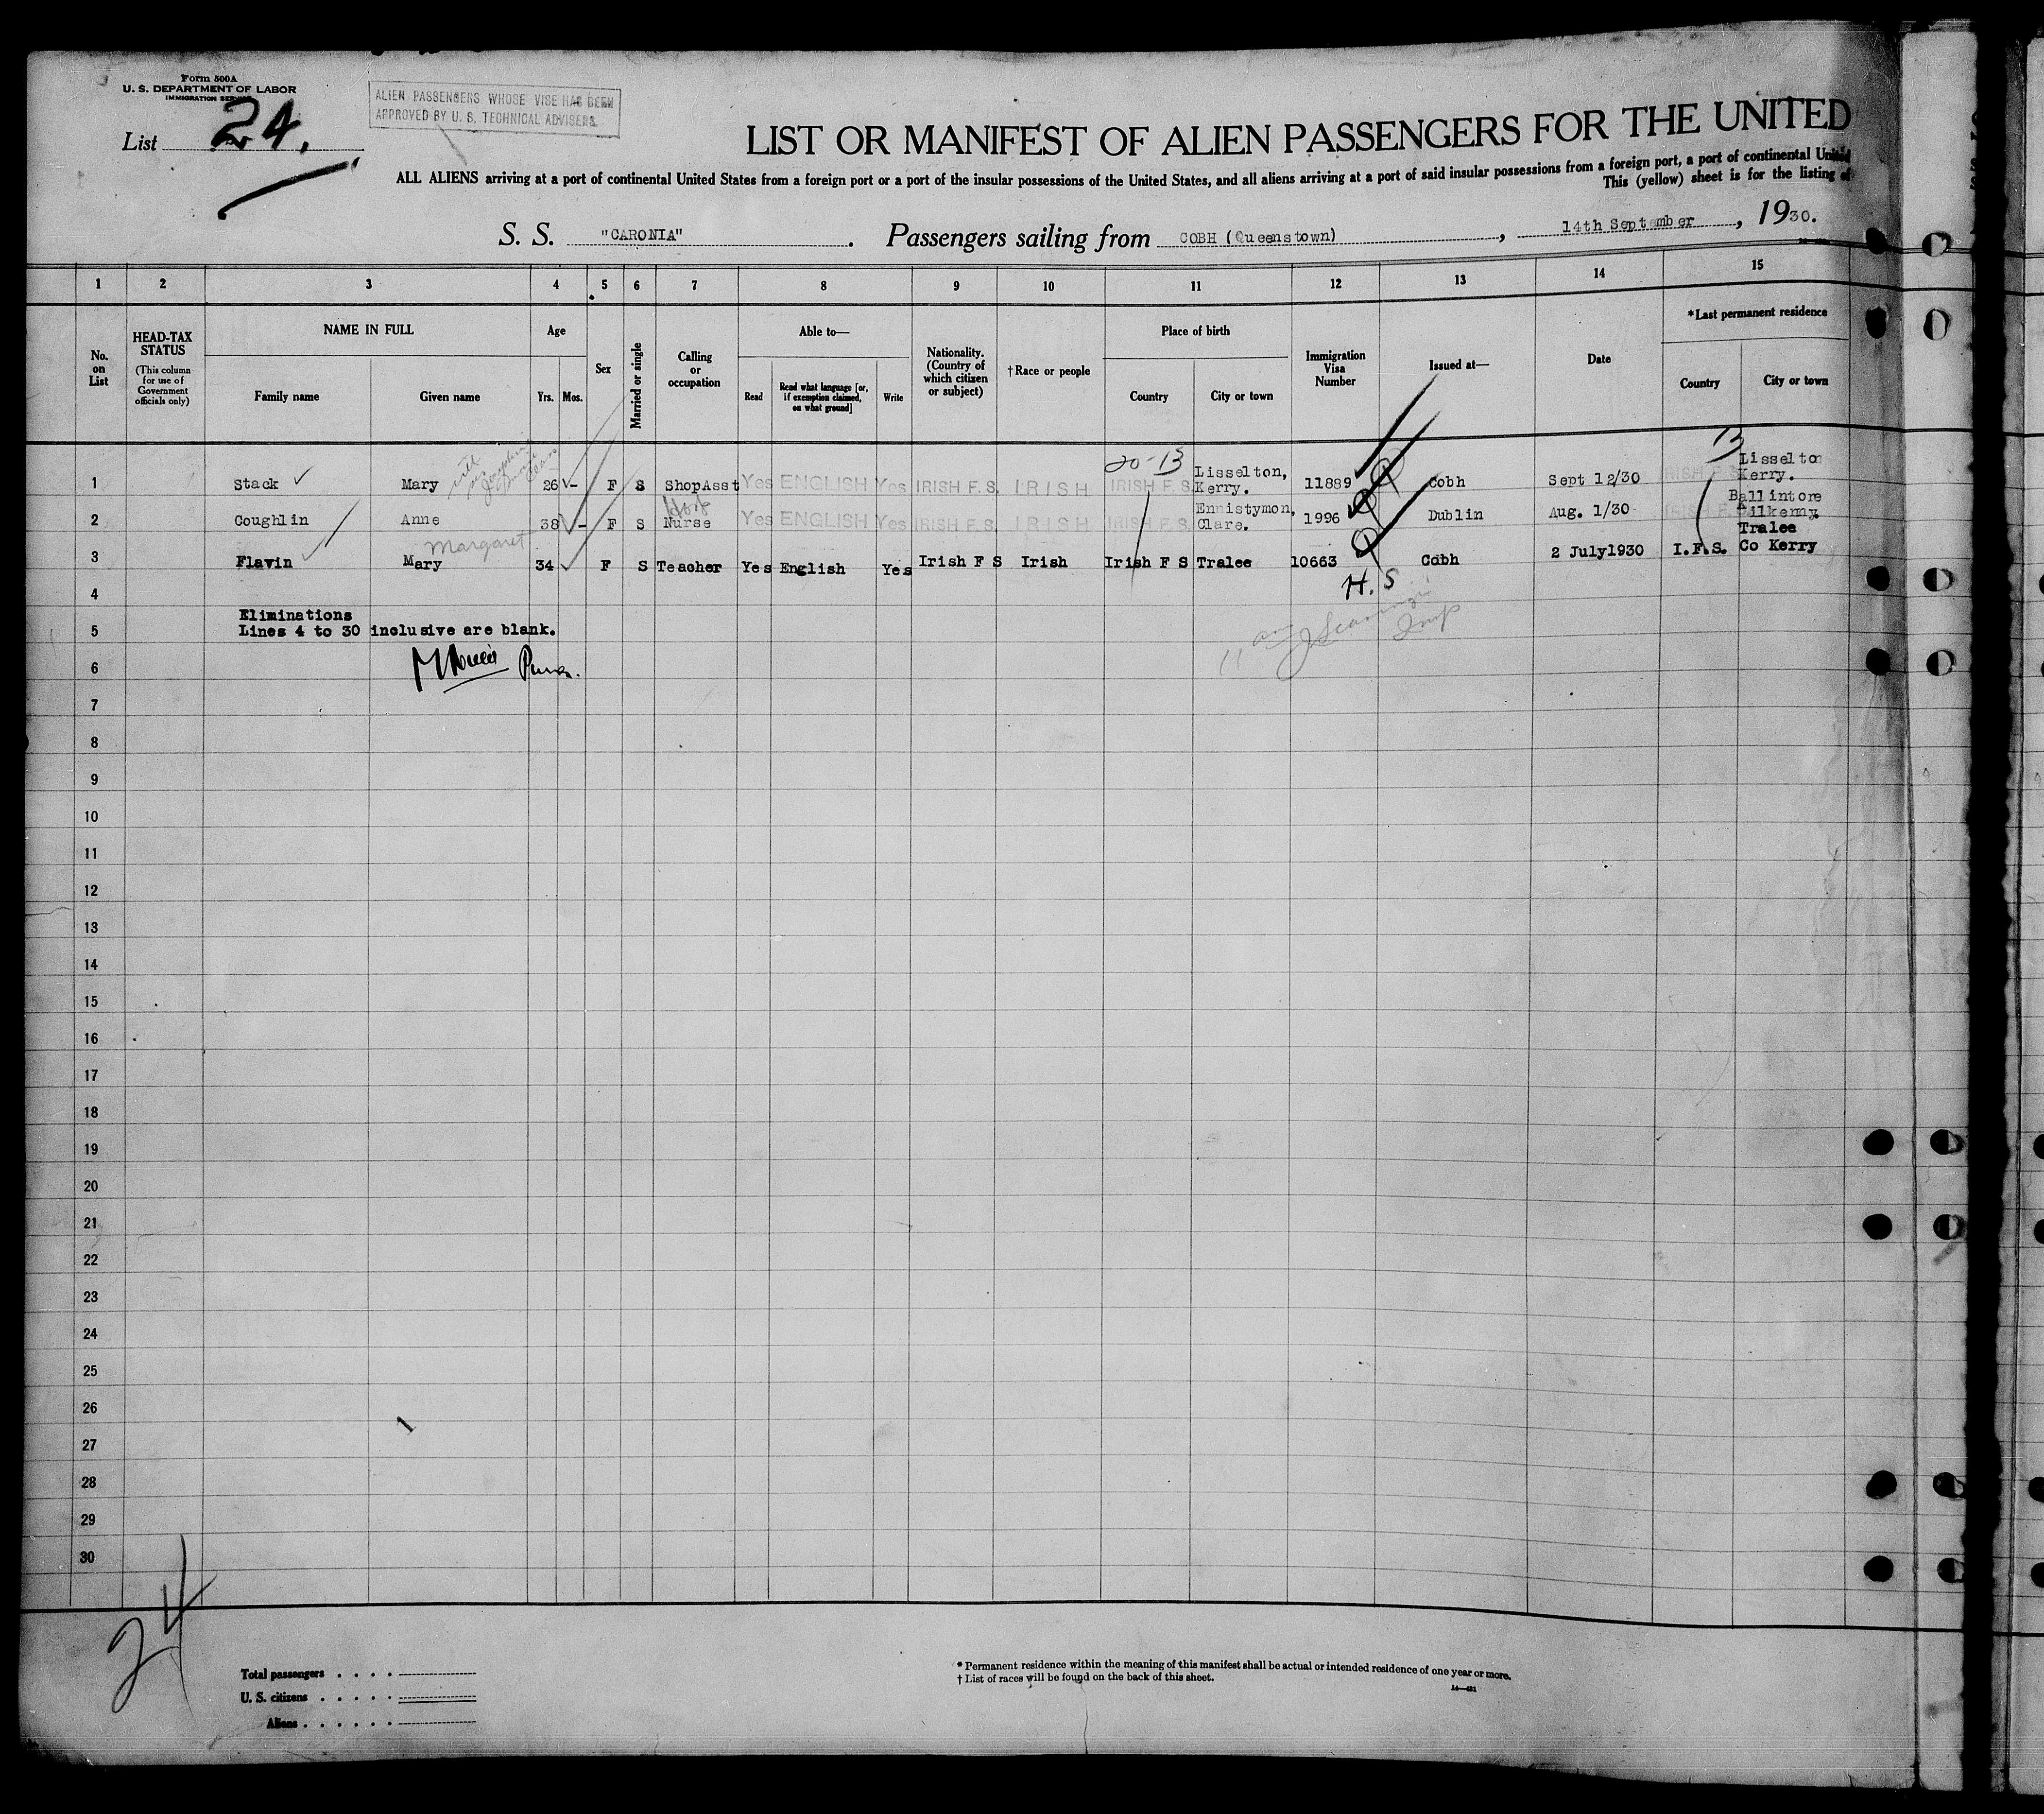 Form 500A
U. S. DEPARTMENT OF LABOR
IMMIGRATION SERVICE
ALIEN PASSENGERS WHOSE VISE HAS BEEN
APPROVED BY U. S. TECHNICAL ADVISERS.
List 24.
LIST OR MANIFEST OF ALIEN PASSENGERS FOR THE UNITED
ALL ALIENS arriving at a port of continental United States from a foreign port or a port of the insular possessions of the United States, and all aliens arriving at a port of said insular possessions from a foreign port, a port of continental United
This (yellow) sheet is for the listing of
S. S. "CARONIA". Passengers sailing from COBH (Queenstown), 14th September, 1930.
1 2 3 4 5 6 7 8 9 10 11 12 13 14 15
No. on List
HEAD-TAX STATUS
(This column for use of Government officials only)
NAME IN FULL
Family name Given name
Age
Yrs. Mos.
Sex
Married or single
Calling or occupation
Able to—
Read Read what language [or, if exemption claimed, on what ground] Write
Nationality. (Country of which citizen or subject)
†Race or people
Place of birth
Country City or town
Immigration Visa Number
Issued at—
Date
*Last permanent residence
Country City or town
20-13 13
1 Stack Mary 26 - F S ShopAsst Yes ENGLISH Yes IRISH F.S. IRISH IRISH F.S. Lisselton, Kerry. 11889 Cobh Sept 12/30 IRISH F.S. Lisselton Kerry.
Hosp
2 Coughlin Anne 38 - F S Nurse Yes ENGLISH Yes IRISH F.S. IRISH IRISH F.S. Ennistymon, Clare. 1996 Dublin Aug. 1/30 IRISH F.S. Ballintore Kilkenny
Margaret
3 Flavin Mary 34 F S Teacher Yes English Yes Irish F S Irish Irish F S Tralee 10663 Cobh 2 July1930 I.F.S. Tralee Co Kerry
H. S
4
Eliminations
5 Lines 4 to 30 inclusive are blank.
6
7
8
9
10
11
12
13
14
15
16
17
18
19
20
21
22
23
24
25
26
27
28
29
30
24
Total passengers . . . .
U. S. citizens . . . . .
Aliens . . . . . .
* Permanent residence within the meaning of this manifest shall be actual or intended residence of one year or more.
† List of races will be found on the back of this sheet.